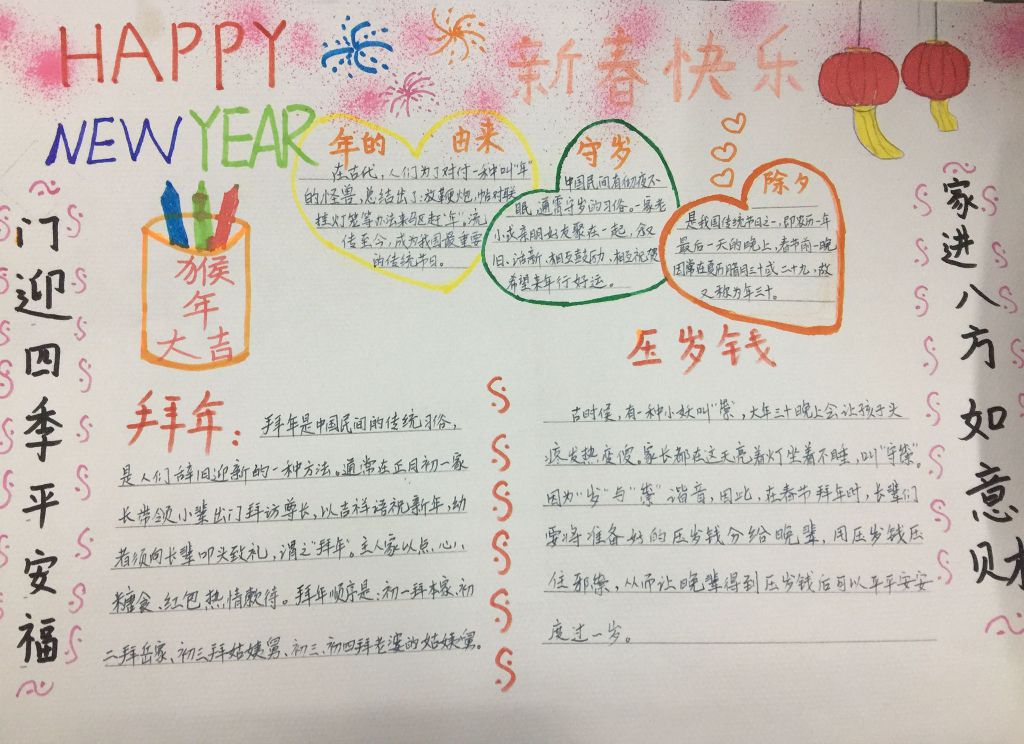 HAPPY
NEW YEAR
新春快乐
门迎四季平安福
家进八方如意财
猴
年
大吉
年的 由来
在古代，人们为了对付一种叫"年"
的怪兽，总结出了放鞭炮，帖对联
挂灯笼等办法来驱赶"年"。流
传至今，成为我国最重要
的传统节日。
守岁
中国民间有彻夜不
眠，通霄守岁的习俗。一家老
小或亲朋好友聚在一起，叙
旧、话新、相互鼓励、相互祝愿
希望来年行好运。
除夕
是我国传统节日之一，即农历一年
最后一天的晚上，春节前一晚
因常在夏历腊月三十或二十九，故
又称为年三十。
拜年：
拜年是中国民间的传统习俗，
是人们辞旧迎新的一种方法。通常在正月初一家
长带领小辈出门拜访尊长，以吉祥语祝新年，幼
者须向长辈叩头致礼，谓之"拜年"。主人家以点心、
糖食、红包热情款待。拜年顺序是：初一拜本家、初
二拜岳家、初三拜姑姨舅、初三、初四拜老婆的姑姨舅。
压岁钱
古时候，有一种小妖叫"祟"，大年三十晚上会让孩子头
疼发热、变傻。家长都在这天亮着灯坐着不睡，叫"守祟"。
因为"岁"与"祟"谐音，因此，在春节拜年时，长辈们
要将准备好的压岁钱分给晚辈，用压岁钱压
住邪祟，从而让晚辈得到压岁钱后可以平平安安
度过一岁。